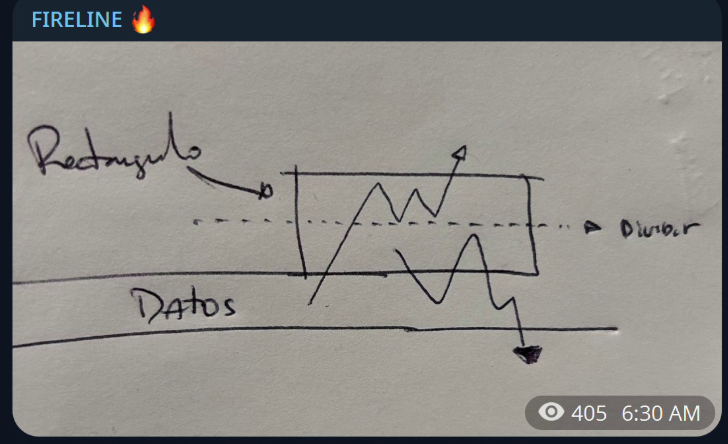 FIRELINE 🔥
Rectangulo
Dividir
DAtos
405 6:30 AM